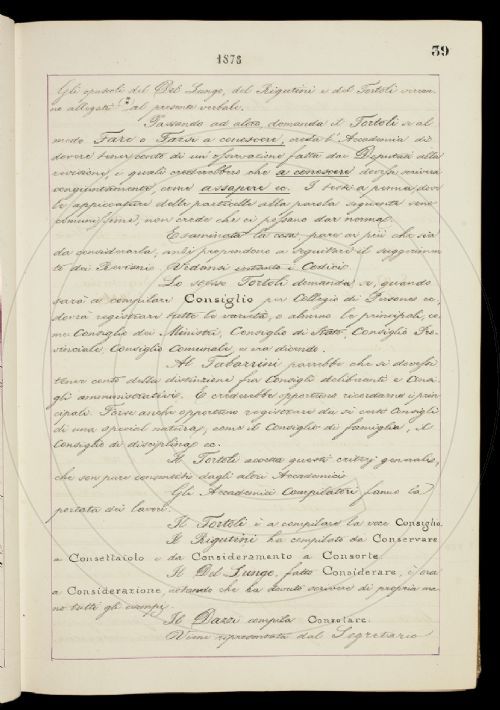 39
1873
Gli spuseti del Del Lungo, del Rigutini e del Tortoli verran-
no allegati al presente verbale.
Passando ad altro, domanda il Tortoli se al
modo Fare o Farsi a conoscere, creda l'Accademia di
dovere tener conto di un'osservazione fatta dai Deputati alla
revisione, i quali crederebbero che a conoscere dovesse scriversi
congiuntamente, come a sapere ec. I testi a penna, dove
le appiccature delle particelle alla parola seguente sono
comunissime, non crede che ci possano dar norma.
Esaminata la cosa pare ai più che sia
da considerarla, anzi propendono a seguitare il suggerimen-
to dei Revisori. Vedansi intanto i Codici.
Lo stesso Tortoli domanda, se, quando
sarà a compilare Consiglio per Collegio di Persone ec,
dovrà registrare tutte le varietà, o almeno le principali, co-
me Consiglio dei Ministri, Consiglio di Stato, Consiglio Pro-
vinciale, Consiglio Comunale, e via dicendo.
Al Tabarrini parrebbe che si dovesse
tener conto della distinzione fra Consigli deliberanti e Consi-
gli amministrativi. E crederebbe opportuno ricordarne i prin-
cipali. Forse anche opportuno registrare da sè certi Consigli
di una special natura, come il Consiglio di famiglia, il
Consiglio di disciplina ec.
Il Tortoli accetta questi criterj generali,
che son pure consentiti dagli altri Accademici.
Gli Accademici Compilatori fanno la
portata dei lavori.
Il Tortoli è a compilare la voce Consiglio.
Il Rigutini ha compilato da Conservare
a Consettaiolo e da Consideramento a Consorte.
Il Del Lungo, fatto Considerare, è ora
a Considerazione, notando che ha dovuto scrivere di propria ma-
no tutti gli esempj.
Il Dazzi compila Consolare.
Viene ripresentata dal Segretario